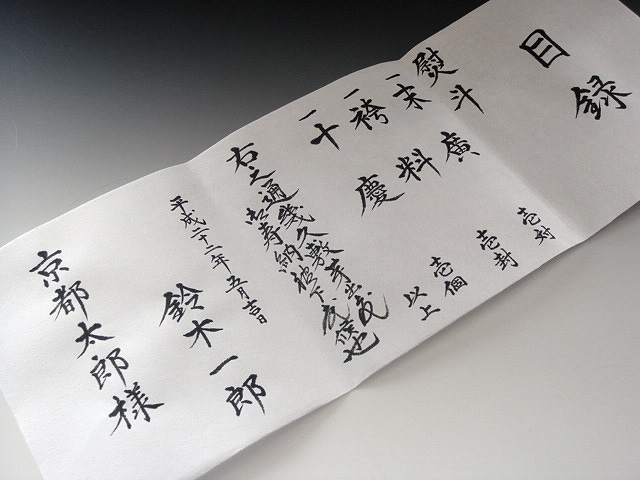 目録
熨斗
一末廣 壱対
一袴料 壱封
一十慶 壱個
以上
右之通幾久敷芽出度
御寿納被下度候也
平成二十二年五月吉日
鈴木一郎
京都太郎様